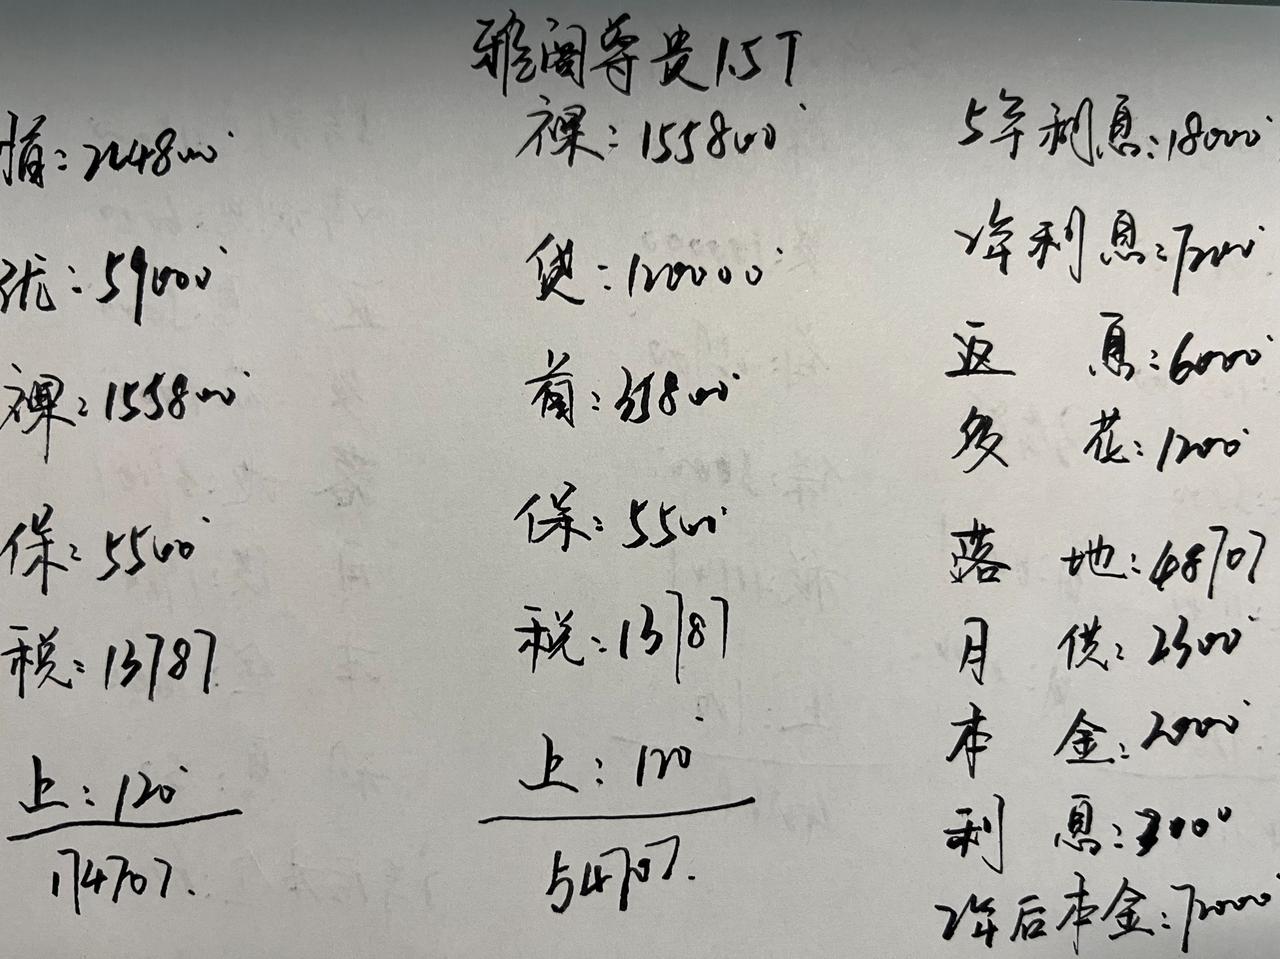 雅阁尊贵1.5T
指:214800
优:59000
裸:155800
保:5500
税:13787
上:120
174707.
裸:155800
贷:120000
首:35800
保:5500
税:13787
上:120
54707.
5年利息:18000
2年利息:7200
返息:6000
多花:1200
落地:48707
月供:2300
本金:2000
利息:300
2年后本金:72000